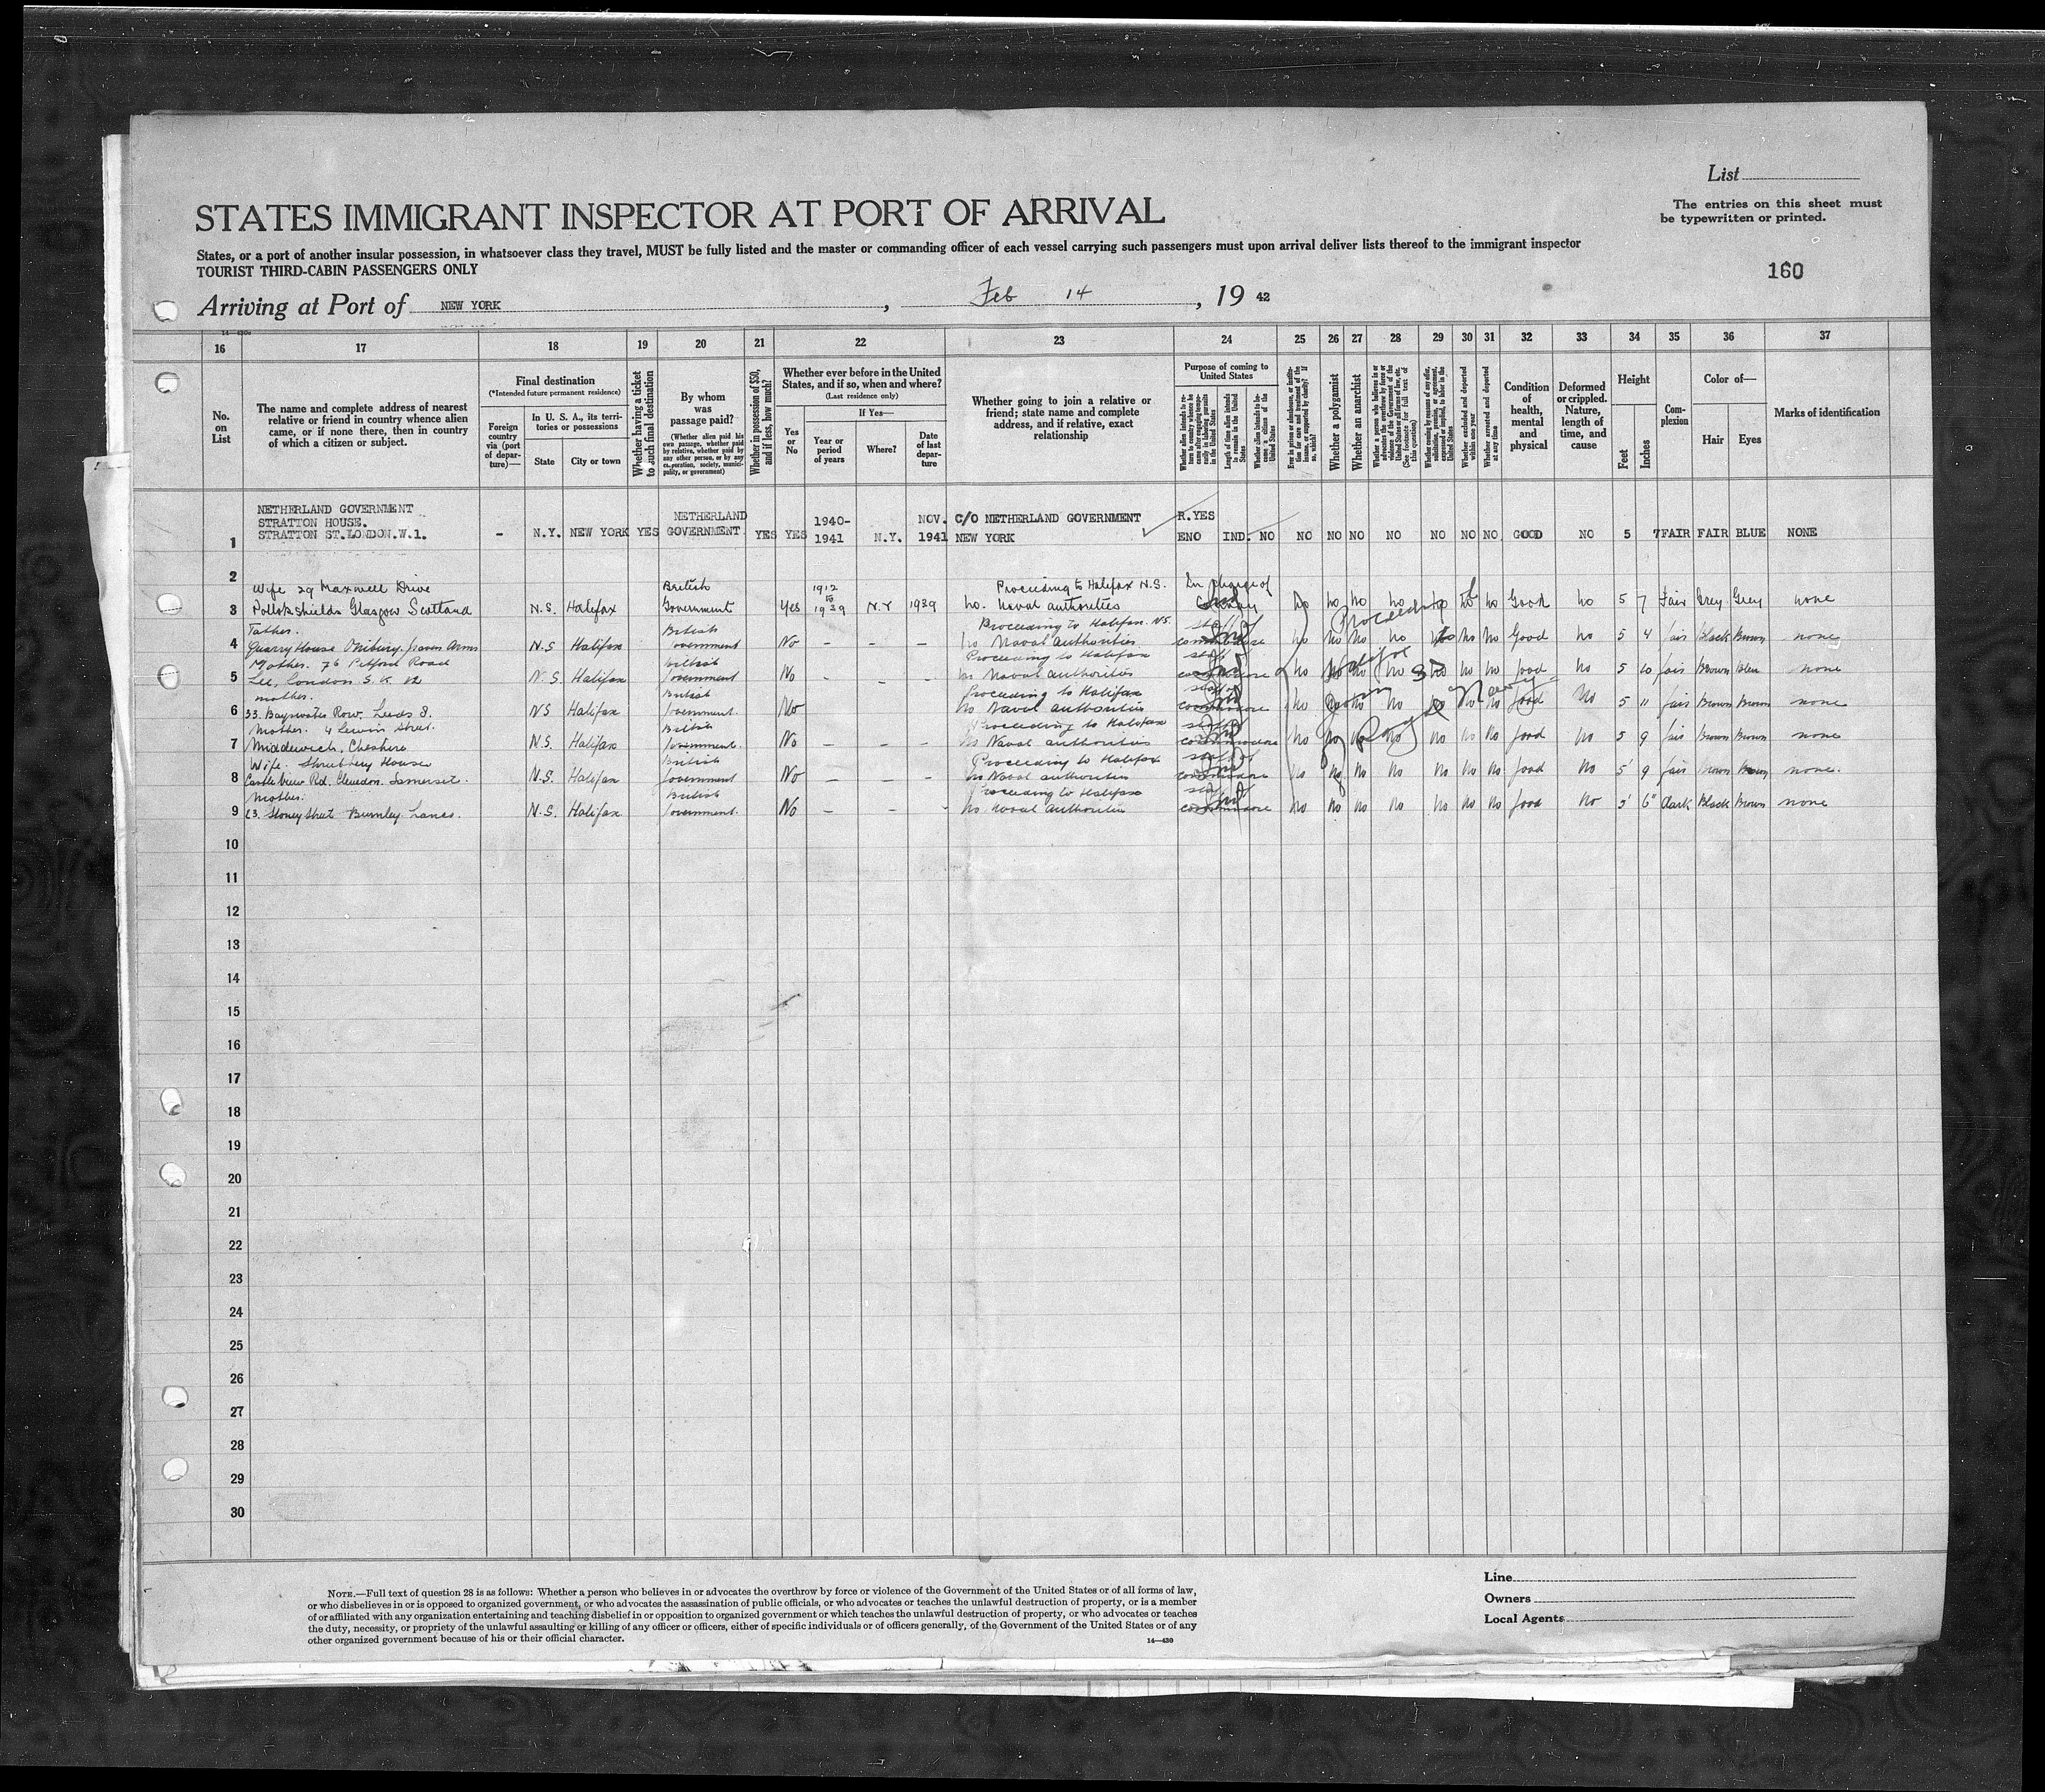 List
The entries on this sheet must
be typewritten or printed.
STATES IMMIGRANT INSPECTOR AT PORT OF ARRIVAL
States, or a port of another insular possession, in whatsoever class they travel, MUST be fully listed and the master or commanding officer of each vessel carrying such passengers must upon arrival deliver lists thereof to the immigrant inspector
TOURIST THIRD-CABIN PASSENGERS ONLY
160
Arriving at Port of NEW YORK, Feb 14, 19 42
16 17 18 19 20 21 22 23 24 25 26 27 28 29 30 31 32 33 34 35 36 37
No. on List
The name and complete address of nearest relative or friend in country whence alien came, or if none there, then in country of which a citizen or subject.
Final destination
(*Intended future permanent residence)
Foreign country via (port of departure)—
In U. S. A., its territories or possessions
State
City or town
Whether having a ticket to such final destination
By whom was passage paid?
(Whether alien paid his own passage, whether paid by relative, whether paid by any other person, or by any corporation, society, municipality, or government)
Whether in possession of $50, and if less, how much?
Whether ever before in the United States, and if so, when and where?
(Last residence only)
Yes or No
If Yes—
Year or period of years
Where?
Date of last departure
Whether going to join a relative or friend; state name and complete address, and if relative, exact relationship
Purpose of coming to United States
Length of time alien intends to remain in the United States
Whether alien intends to become a citizen of the United States
Whether a polygamist
Whether an anarchist
Whether excluded and deported within one year
Whether arrested and deported at any time
Condition of health, mental and physical
Deformed or crippled. Nature, length of time, and cause
Height
Feet
Inches
Complexion
Color of—
Hair
Eyes
Marks of identification
NETHERLAND GOVERNMENT
STRATTON HOUSE.
1 STRATTON ST.LONDON.W.1. - N.Y. NEW YORK YES NETHERLAND GOVERNMENT YES YES 1940-1941 N.Y. NOV. 1941 C/O NETHERLAND GOVERNMENT NEW YORK R.YES ENO IND. NO NO NO NO NO NO NO NO GOOD NO 5 7 FAIR FAIR BLUE NONE
2
Wife 29 Maxwell Drive British 1912 to Proceeding to Halifax N.S. In charge of
3 Pollokshields Glasgow Scotland N.S. Halifax Government Yes 1939 N.Y 1939 no. Naval authorities no no no no no no no Good no 5 7 Fair Grey Grey none
Father. British Proceeding to Halifax. N.S. staff of
4 Quarry House N.S Halifax Government No - - - no Naval authorities commodore no no no no no no no Good no 5 4 fair black Brown none
Mother. 76 Road British Proceeding to Halifax staff
5 Lee, London S.E. 12 N.S. Halifax Government No - - - no Naval authorities commodore no no no no no no no good no 5 10 fair Brown Blue none
Mother. British Proceeding to Halifax staff of
6 33. Bayswater Row. Leeds 8. N S Halifax Government. No no Naval authorities commodore no no no no no good no 5 11 fair Brown Brown none
Mother. 4 Lewin Street. British Proceeding to Halifax staff
7 Middlewich, Cheshire N.S. Halifax Government. No - - - no Naval authorities commodore no no no no no no no good no 5 9 fair Brown Brown none
Wife. Shrubbery House British Proceeding to Halifax staff of
8 Castle View Rd. Clevedon. Somerset. N.S. Halifax Government No - - - no Naval authorities commodore no no no no no no no good no 5' 9 fair Brown Brown none.
Mother. British Proceeding to Halifax staff
9 Stoney Street Burnley Lancs. N.S. Halifax Government. No - - - no naval authorities commodore no no no no no no no good no 5' 6" dark Black Brown none
Proceeding
Royal Navy
10
11
12
13
14
15
16
17
18
19
20
21
22
23
24
25
26
27
28
29
30
NOTE.—Full text of question 28 is as follows: Whether a person who believes in or advocates the overthrow by force or violence of the Government of the United States or of all forms of law,
or who disbelieves in or is opposed to organized government, or who advocates the assassination of public officials, or who advocates or teaches the unlawful destruction of property, or is a member
of or affiliated with any organization entertaining and teaching disbelief in or opposition to organized government or which teaches the unlawful destruction of property, or who advocates or teaches
the duty, necessity, or propriety of the unlawful assaulting or killing of any officer or officers, either of specific individuals or of officers generally, of the Government of the United States or of any
other organized government because of his or their official character.
14—430
Line
Owners
Local Agents